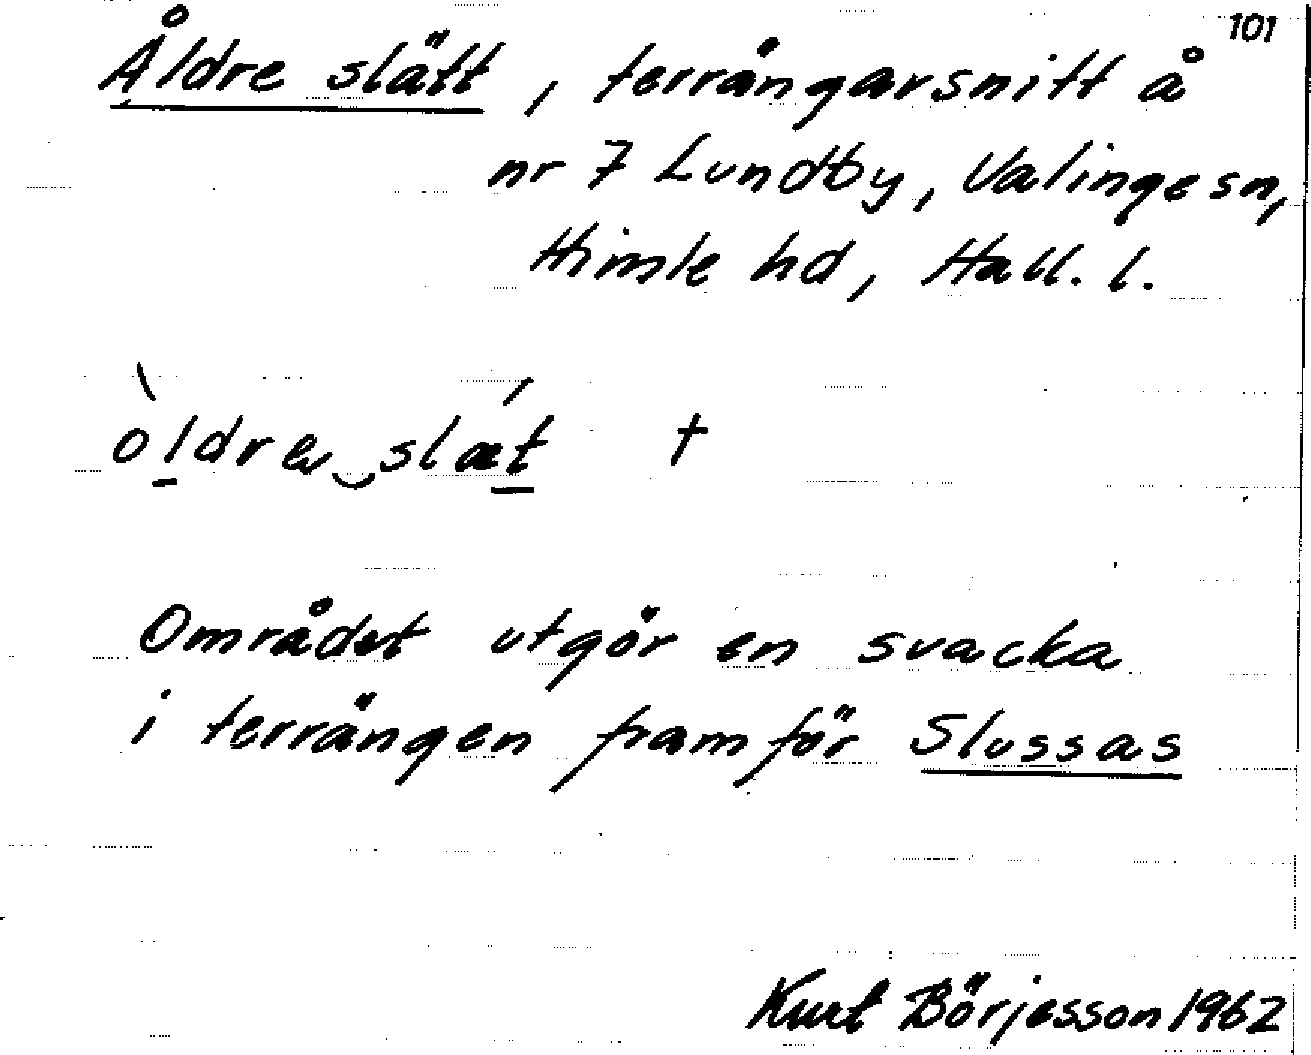 101
Åldre slätt, terrängavsnitt å
nr 7 Lundby, Valinge sn,
Himle hd, Hall. l.
òldre‿slǽt †
Området utgör en svacka
i terrängen framför Slussas
Kurt Börjesson 1962